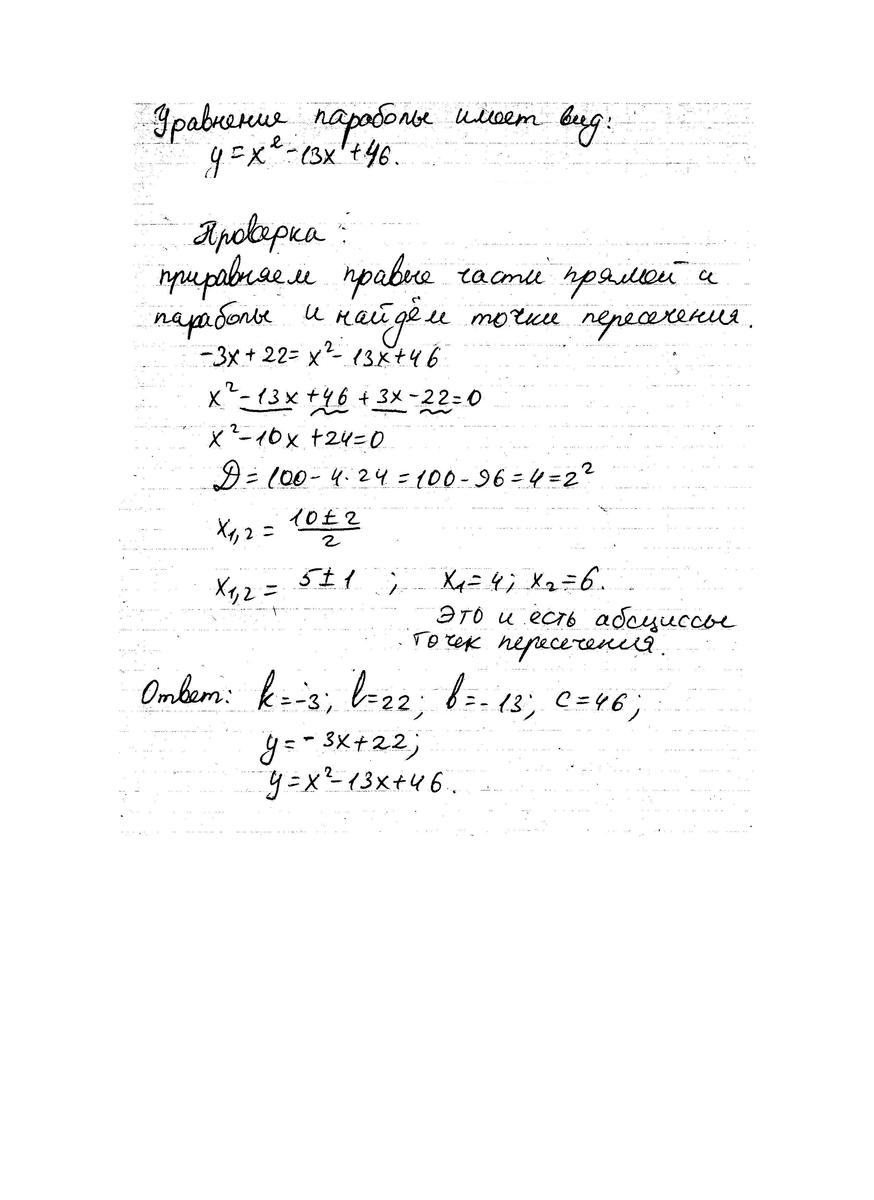 Уравнение параболы имеет вид:
y = x² - 13x + 46.
Проверка:
приравняем правые части прямой и
параболы и найдём точки пересечения.
-3x + 22 = x² - 13x + 46
x² - 13x + 46 + 3x - 22 = 0
x² - 10x + 24 = 0
D = 100 - 4·24 = 100 - 96 = 4 = 2²
x₁,₂ = (10 ± 2)/2
x₁,₂ = 5 ± 1 ; x₁ = 4; x₂ = 6.
Это и есть абсциссы
точек пересечения.
Ответ: k = -3; l = 22; b = -13; c = 46;
y = -3x + 22;
y = x² - 13x + 46.